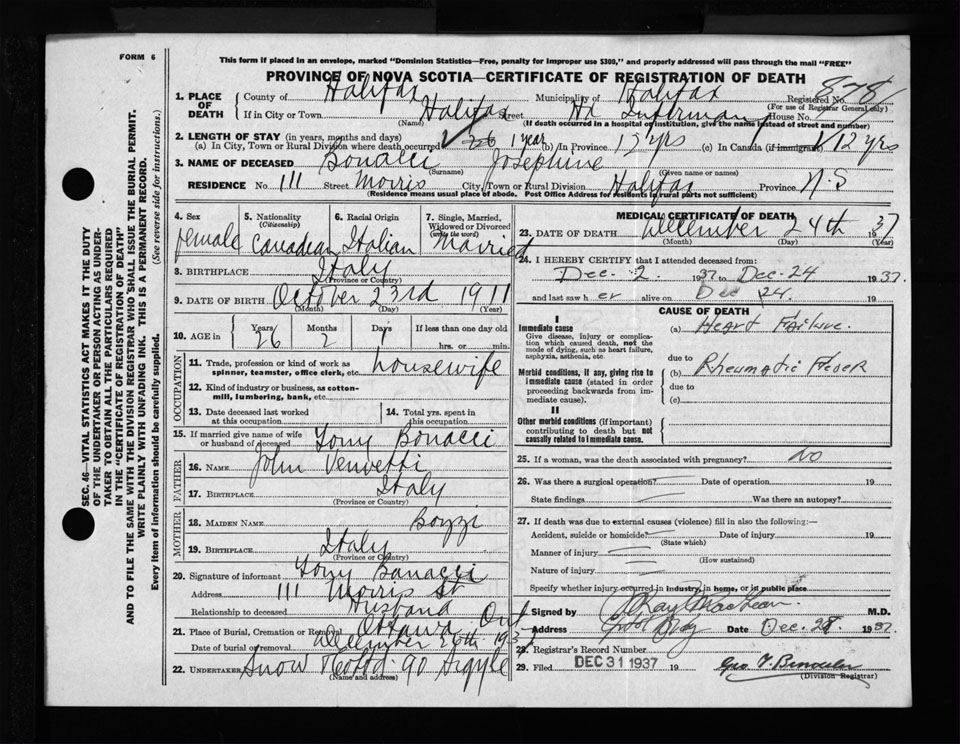 FORM 6
This form if placed in an envelope, marked "Dominion Statistics—Free, penalty for improper use $300," and properly addressed will pass through the mail "FREE"
PROVINCE OF NOVA SCOTIA—CERTIFICATE OF REGISTRATION OF DEATH
SEC. 46—VITAL STATISTICS ACT MAKES IT THE DUTY
OF THE UNDERTAKER OR PERSON ACTING AS UNDER-
TAKER TO OBTAIN ALL THE PARTICULARS REQUIRED
IN THE "CERTIFICATE OF REGISTRATION OF DEATH"
AND TO FILE THE SAME WITH THE DIVISION REGISTRAR WHO SHALL ISSUE THE BURIAL PERMIT.
WRITE PLAINLY WITH UNFADING INK. THIS IS A PERMANENT RECORD.
Every item of information should be carefully supplied. (See reverse side for instructions.)
1. PLACE OF DEATH County of Halifax Municipality of Halifax Registered No. 878
(For use of Registrar General only)
If in City or Town Halifax Street House No.
(Name) (If death occurred in a hospital or institution, give the name instead of street and number)
2. LENGTH OF STAY (in years, months and days)
(a) In City, Town or Rural Division where death occurred 1 year (b) In Province 12 yrs (c) In Canada (if immigrant) 12 yrs
3. NAME OF DECEASED Bonacci Josephine
(Surname) (Given name or names)
RESIDENCE No. 111 Street Morris City, Town or Rural Division Halifax Province N-S
(Residence means usual place of abode. Post Office Address for residents in rural parts not sufficient)
4. Sex 5. Nationality (Citizenship) 6. Racial Origin 7. Single, Married, Widowed or Divorced (write the word)
female Canadian Italian Married
8. BIRTHPLACE Italy
(Province or Country)
9. DATE OF BIRTH October 23rd 1911
(Month) (Day) (Year)
10. AGE in Years Months Days If less than one day old
26 2 1 hrs. or min.
OCCUPATION
11. Trade, profession or kind of work as
spinner, teamster, office clerk, etc. housewife
12. Kind of industry or business, as cotton-
mill, lumbering, bank, etc.
13. Date deceased last worked at this occupation 14. Total yrs. spent in this occupation
15. If married give name of wife
or husband of deceased Tony Bonacci
FATHER
16. NAME John
17. BIRTHPLACE Italy
(Province or Country)
MOTHER
18. MAIDEN NAME Bozzi
19. BIRTHPLACE Italy
(Province or Country)
20. Signature of informant Tony Bonacci
Address 111 Morris St
Relationship to deceased Husband
21. Place of Burial, Cremation or Removal Ottawa Ont
Date of burial or removal December 26th 1937
22. UNDERTAKER Snow 90 Argyle
(Name and address)
MEDICAL CERTIFICATE OF DEATH
23. DATE OF DEATH December 24th 1937
(Month) (Day) (Year)
24. I HEREBY CERTIFY that I attended deceased from:
Dec. 2 1937 to Dec-24 1937.
and last saw her alive on Dec 24. 19
CAUSE OF DEATH
I
Immediate cause
Give disease, injury or complication which caused death, not the mode of dying, such as heart failure, asphyxia, asthenia, etc.
(a) Heart Failure.
due to
Morbid conditions, if any, giving rise to immediate cause (stated in order proceeding backwards from immediate cause).
(b) Rheumatic Fever
due to
(c)
II
Other morbid conditions (if important) contributing to death but not causally related to immediate cause.
25. If a woman, was the death associated with pregnancy? No
26. Was there a surgical operation? Date of operation 19
State findings Was there an autopsy?
27. If death was due to external causes (violence) fill in also the following:—
Accident, suicide or homicide? Date of injury 19
(State which)
Manner of injury
(How sustained)
Nature of injury
Specify whether injury occurred in industry, in home, or in public place
Signed by M.D.
Address Date Dec. 28 1937.
28. Registrar's Record Number
29. Filed DEC 31 1937 19
(Division Registrar)